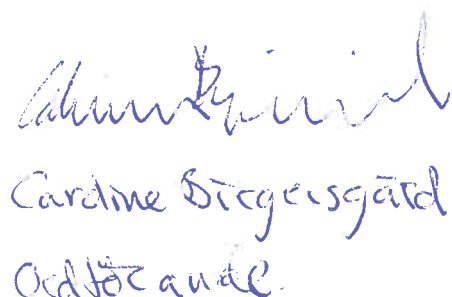 Caroline Birgersgård
Ordförande.